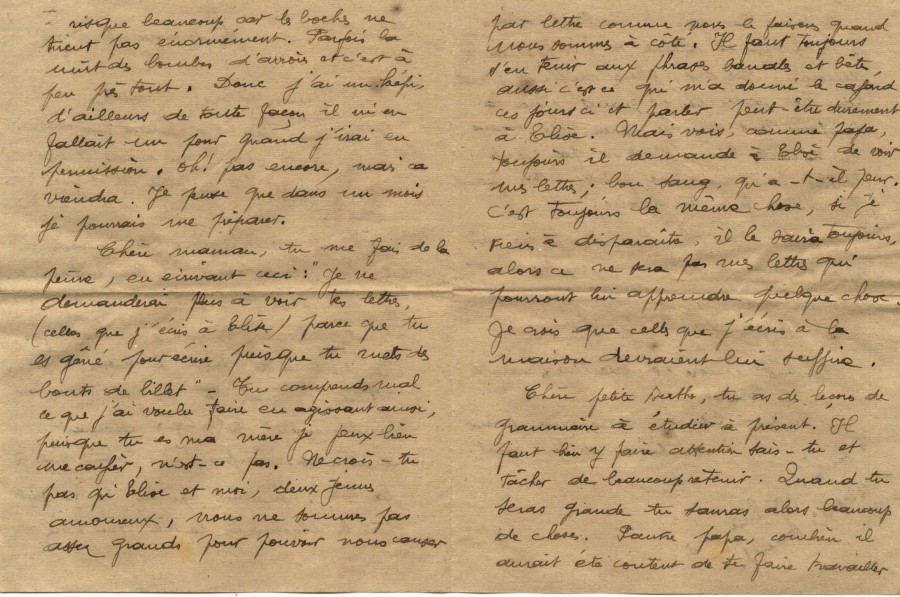 risque beaucoup car les boches ne
tirent pas énormément. Parfois la
nuit des bombes d'avions et c'est à
peu près tout. Donc j'ai un képi,
d'ailleurs de toute façon il m'en
fallait un pour quand j'irai en
permission. Oh! pas encore, mais ça
viendra. Je pense que dans un mois
je pourrais me préparer.
Chère maman, tu me fais de la
peine, en écrivant ceci : "Je ne
demanderai plus à voir tes lettres,
(celles que j'écris à Elise) parce que tu
es gêné pour écrire puisque tu mets des
bouts de billet" - Tu comprends mal
ce que j'ai voulu faire en agissant ainsi,
puisque tu es ma mère je peux bien
me confier, n'est-ce pas. Ne crois-tu
pas qu'Elise et moi, deux jeunes
amoureux, nous ne sommes pas
assez grands pour pouvoir nous causer
par lettre comme nous le faisons quand
nous sommes à côté. Il faut toujours
s'en tenir aux phrases banales et bête
aussi c'est ce qui m'a donné le cafard
ces jours ci et parler peut-être durement
à Elise. Mais vois, comme papa,
toujours il demande à Elise de voir
mes lettres; bon sang, qu'a-t-il peur.
C'est toujours la même chose, si je
viens à disparaître, il le saura toujours,
alors ce ne sera pas mes lettres qui
pourront lui apprendre quelque chose.
Je crois que celles que j'écris à la
maison devraient lui suffire.
Chère petite Berthe, tu as des leçons de
grammaire à étudier à présent. Il
faut bien y faire attention sais-tu et
tâcher de beaucoup retenir. Quand tu
seras grande tu sauras alors beaucoup
de choses. Pauvre papa, combien il
aurait été content de te faire travailler